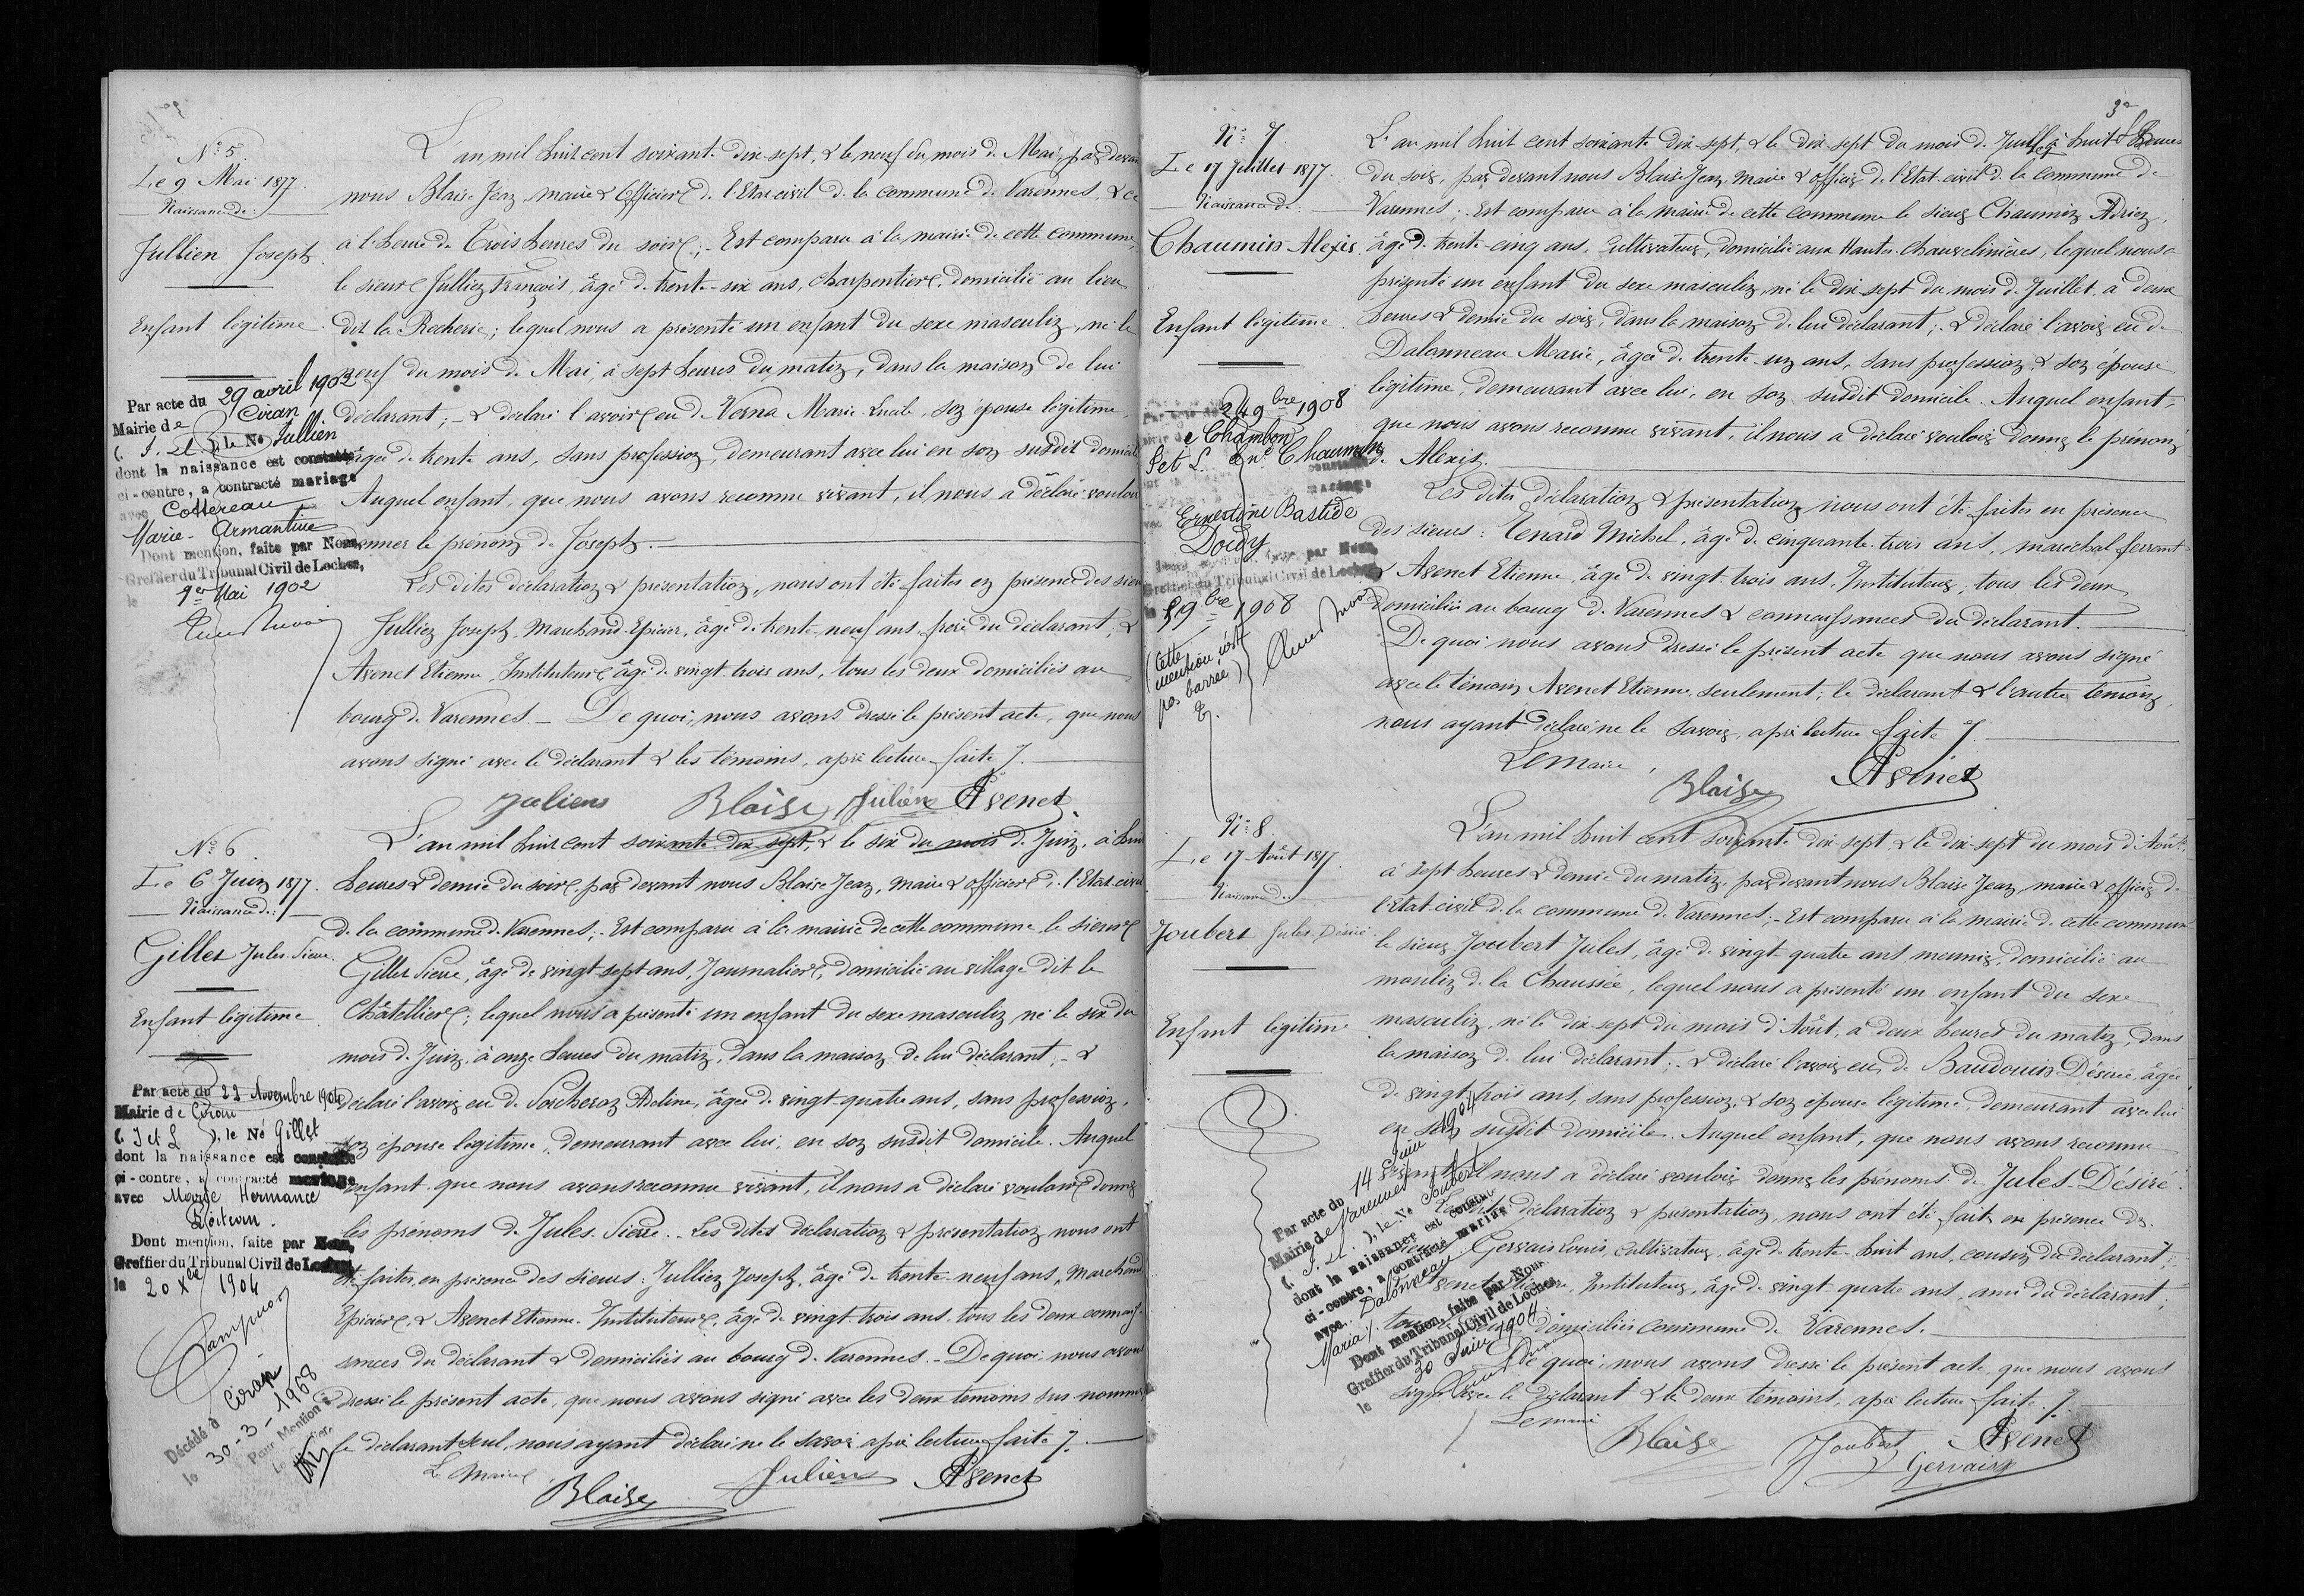 N° 5.
Le 9 Mai 1877.
Naissance de:
Jullien Joseph.
Enfant légitime.
Par acte du 29 avril 1902
Mairie de Ciran
(J. et L.), le Né Jullien
dont la naissance est constatée
ci-contre, a contracté mariage
avec Cottereau
Marie-Armantine
Dont mention, faite par Nous,
Greffier du Tribunal Civil de Loches,
le 1er Mai 1902
L'an mil huit cent soixante dix-sept, & le neuf du mois de Mai, par devant
nous Blaise Jean, maire & Officier de l'Etat-civil de la commune de Varennes, & ce
à l'heure de Trois heures du soir; - Est comparu à la mairie de cette commune,
le sieur Jullien François, âgé de trente-six ans, charpentier, domicilié au lieu
dit la Recherie; lequel nous a présenté un enfant du sexe masculin, né le
neuf du mois de Mai, à sept heures du matin, dans la maison de lui
déclarant; - & déclaré l'avoir eu de Verna Marie Lucile, son épouse légitime,
âgée de trente ans, sans profession, demeurant avec lui en son susdit domicile
Auquel enfant, que nous avons reconnu vivant, il nous a déclaré vouloir
donner le prénom de Joseph.
Les dites déclaration & présentation, nous ont été faites en présence des sieurs
Jullien Joseph, Marchand-Epicier, âgé de trente-neuf ans, frère du déclarant, &
Avenet Etienne, Instituteur âgé de vingt-trois ans, tous les deux domiciliés au
bourg de Varennes. - De quoi, nous avons dressé le présent acte, que nous
avons signé avec le déclarant & les témoins, après lecture faite.
Juliens Blaise Julien Avenet
N° 6
Le 6 Juin 1877.
Naissance de:
Gillet Jules Pierre.
Enfant légitime.
Par acte du 22 Novembre 1904
Mairie de Ciran
(J et L), le Né Gillet
dont la naissance est constatée
ci-contre, a contracté mariage
avec Marie Hermance
Poitevin.
Dont mention, faite par Nous,
Greffier du Tribunal Civil de Loches
le 20 Xbre 1904
Décédé à Ciran
le 30-3-1958
Pour Mention
Le Greffier,
L'an mil huit cent soixante dix sept, & le six du mois de Juin, à huit
heures & demie du soir, par devant nous Blaise Jean, maire & officier de l'Etat-civil
de la commune de Varennes; - Est comparu à la mairie de cette commune le sieur
Gillet Pierre, âgé de vingt-sept ans, Journalier, domicilié au village dit le
Châtellier; lequel nous a présenté un enfant du sexe masculin, né le six du
mois de Juin, à onze heures du matin, dans la maison de lui déclarant; - &
déclaré l'avoir eu de Adeline, âgée de vingt-quatre ans, sans profession,
son épouse légitime, demeurant avec lui, en son susdit domicile. Auquel
enfant que nous avons reconnu vivant, il nous a déclaré vouloir donner
les prénoms de Jules Pierre. - Les dites déclaration & présentation nous ont
été faites, en présence des sieurs: Jullien Joseph, âgé de trente-neuf ans, Marchand
Epicier, & Avenet Etienne, Instituteur, âgé de vingt-trois ans tous les deux connais-
sances du déclarant & domiciliés au bourg de Varennes. - De quoi nous avons
dressé le présent acte, que nous avons signé avec les deux témoins sus-nommés
le déclarant seul, nous ayant déclaré ne le savoir, après lecture faite.
Le Maire, Blaise Julien Avenet
3e
N° 7
Le 17 Juillet 1877.
Naissance de:
Chaumin Alexis.
Enfant légitime.
24 9bre 1908
Chambon
J et L. Né Chaumin
Ernestine Bastide
Doudy
5 9bre 1908
(Cette
mention n'est
pas barrée)
L'an mil huit cent soixante dix-sept, & le dix sept du mois de Juillet à huit heures
du soir, par devant nous Blaise Jean, Maire & officier de l'Etat-civil de la commune de
Varennes; Est comparu à la mairie de cette commune le sieur Chaumin Adrien,
âgé de trente-cinq ans, Cultivateur, domicilié aux Hautes-Chauvelinières, lequel nous a
présenté un enfant du sexe masculin, né le dix-sept du mois de Juillet, à deux
heures & demie du soir, dans la maison de lui déclarant; & déclaré l'avoir eu de
Dalonneau Marie, âgée de trente-un ans, sans profession, & son épouse
légitime, demeurant avec lui, en son susdit domicile. Auquel enfant,
que nous avons reconnu vivant, il nous a déclaré vouloir donner le prénom
de Alexis.
Les dites déclaration & présentation, nous ont été faites en présence
des sieurs: Tenard Michel, âgé de cinquante-trois ans, maréchal-ferrant
& Avenet Etienne, âgé de vingt-trois ans, Instituteur, tous les deux
domiciliés au bourg de Varennes & connaissances du déclarant.
De quoi nous avons dressé le présent acte que nous avons signé
avec le témoin Avenet Etienne, seulement; le déclarant & l'autre témoin,
nous ayant déclaré ne le savoir, après lecture faite.
Le Maire, Blaise Avenet
N° 8
Le 17 Août 1877.
Naissance de:
Joubert Jules Désiré.
Enfant légitime.
Par acte du 14 Juin 1904
Mairie de Varennes
(J. L.), le Né Joubert
dont la naissance est constatée
ci-contre, a contracté mariage
avec Dalonneau
Maria
Dont mention, faite par Nous
Greffier du Tribunal Civil de Loches
le 30 Juin 1904
L'an mil huit cent soixante dix-sept, & le dix-sept du mois d'Août,
à sept heures & demie du matin, par devant nous Blaise Jean, maire & officier de
l'Etat-civil de la commune de Varennes; - Est comparu à la mairie de cette commune
le sieur Joubert Jules, âgé de vingt-quatre ans, meunier, domicilié au
moulin de la Chaussée, lequel nous a présenté un enfant du sexe
masculin, né le dix-sept du mois d'Août, à deux heures du matin, dans
la maison de lui déclarant; & déclaré l'avoir eu de Baudouin Désirée, âgée
de vingt-trois ans, sans profession, & son épouse légitime, demeurant avec lui
en son susdit domicile. Auquel enfant, que nous avons reconnu
vivant, il nous a déclaré vouloir donner les prénoms de Jules-Désiré.
Les dites déclaration & présentation, nous ont été faites en présence des
sieurs: Gervais Louis, cultivateur, âgé de trente-huit ans, cousin du déclarant;
& Avenet Etienne, Instituteur, âgé de vingt-quatre ans, ami du déclarant;
tous les deux domiciliés commune de Varennes.
De quoi, nous avons dressé le présent acte, que nous avons
signé avec le déclarant & les deux témoins, après lecture faite.
Le maire Blaise Joubert Avenet
Gervais